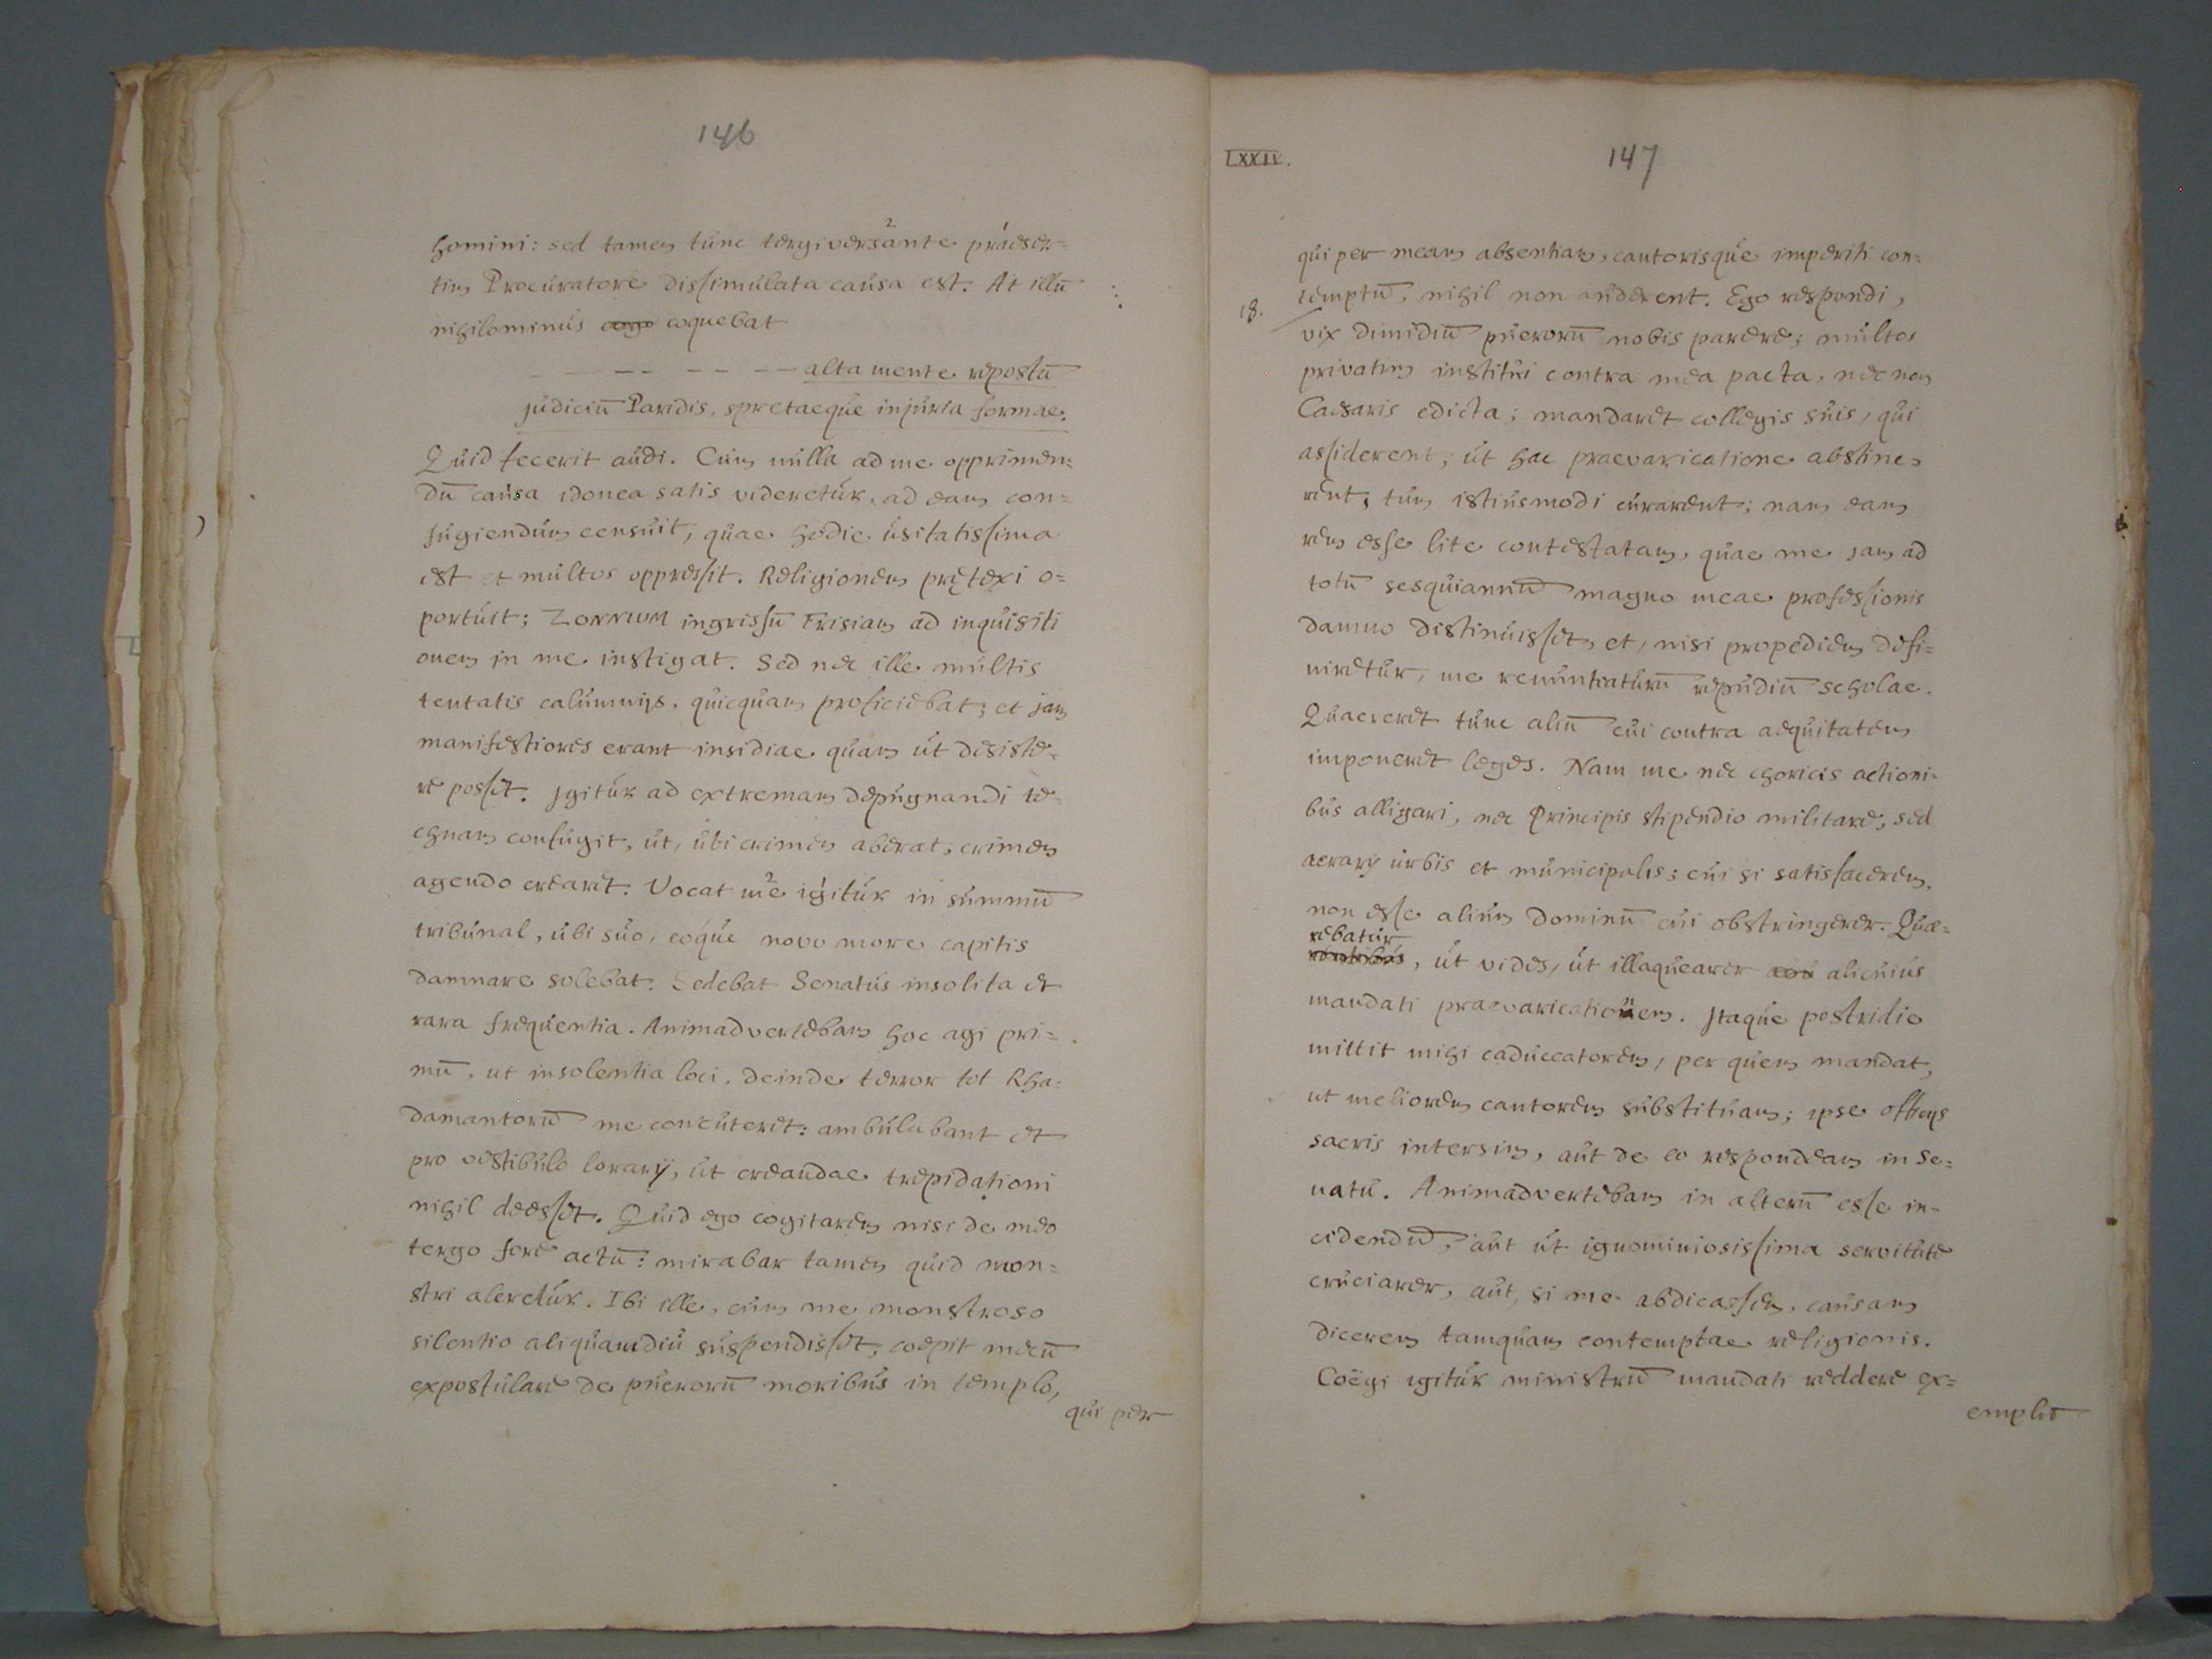 146
homini: sed tamen tunc tergiversante praeser=
tim Procuratore dissimulata causa est. At illū
nihilominus coquebat
— — — — — alta mente repostū
judiciū Paridis, spretaeque injuria formae.
Quid fecerit audi. Cum nulla ad me opprimen=
dū causa idonea satis videretur, ad eam con=
fugiendum censuit, quae hodie usitatissima
est et multos oppressit. Religionem prętexi o=
portuit; ZONNIUM ingrissū Frisiam ad inquisiti
onem in me instigat. Sed nec ille multis
tentatis calumnijs, quicquam proficiebat; et jam
manifestiores erant insidiae quam ut desiste=
re posset. Jgitur ad extremam depugnandi te=
chnam confugit, ut, ubi crimen aberat, crimen
agendo crearet. Vocat me igitur in summū
tribunal, ubi suo, eoque novo more capitis
damnare solebat. Sedebat Senatus insolita et
rara frequentia. Animadvertebam hoc agi pri=
mū, ut insolentia loci, deinde terror tot Rha=
damantorū me concuteret: ambulabant et
pro vestibulo lorarij, ut creandae trepidationi
nihil deesset. Quid ego cogitarem nisi de meo
tergo fore actū: mirabar tamen quid mon=
stri aleretur. Ibi ille, cum me monstroso
silentio aliquamdiu suspendisset, coepit mecū
expostulare de puerorū moribus in templo,
qui per
LXXIV.
147
qui per meam absentiam, cantorisque imperiti con=
temptū, nihil non auderent. Ego respondi,
18.
vix dimidiū puerorū nobis parere; multos
privatim institui contra mea pacta, nec non
Caesaris edicta; mandaret collegis suis, qui
assiderent, ut hac praevaricatione abstine=
rent, tum istiusmodi curarent; nam eam
rem esse lite contestatam, quae me jam ad
totū sesquiannū magno meae professionis
damno distinuisset, et, nisi propediem defi=
niretur, me renuntiaturū repudiū scholae.
Quaereret tunc aliū cui contra aequitatem
imponeret leges. Nam me nec choricis actioni=
bus alligari, nec Principis stipendio militare, sed
aerarij urbis et municipalis; cui si satisfacerem,
non esse alium dominū cui obstringerer. Quae=
rebatur
, ut vides, ut illaquearer alicuius
mandati praevaricationem. Jtaque postridie
mittit mihi caduceatorem, per quem mandat,
ut meliorem cantorem substituam; ipse officijs
sacris intersim, aut de eo respondeam in Se=
natu. Animadvertebam in alterū esse in=
cidendū, aut ut ignominiosissima servitute
cruciarer, aut, si me abdicassem, causam
dicerem tamquam contemptae religionis.
Coëgi igitur ministrū mandati reddere ex=
emplū